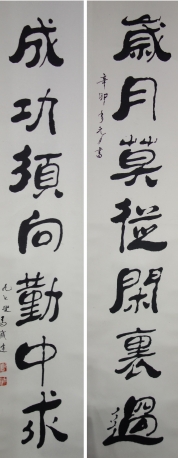 歲月莫從閑裏過
辛卯年元月書
成功須向勤中求